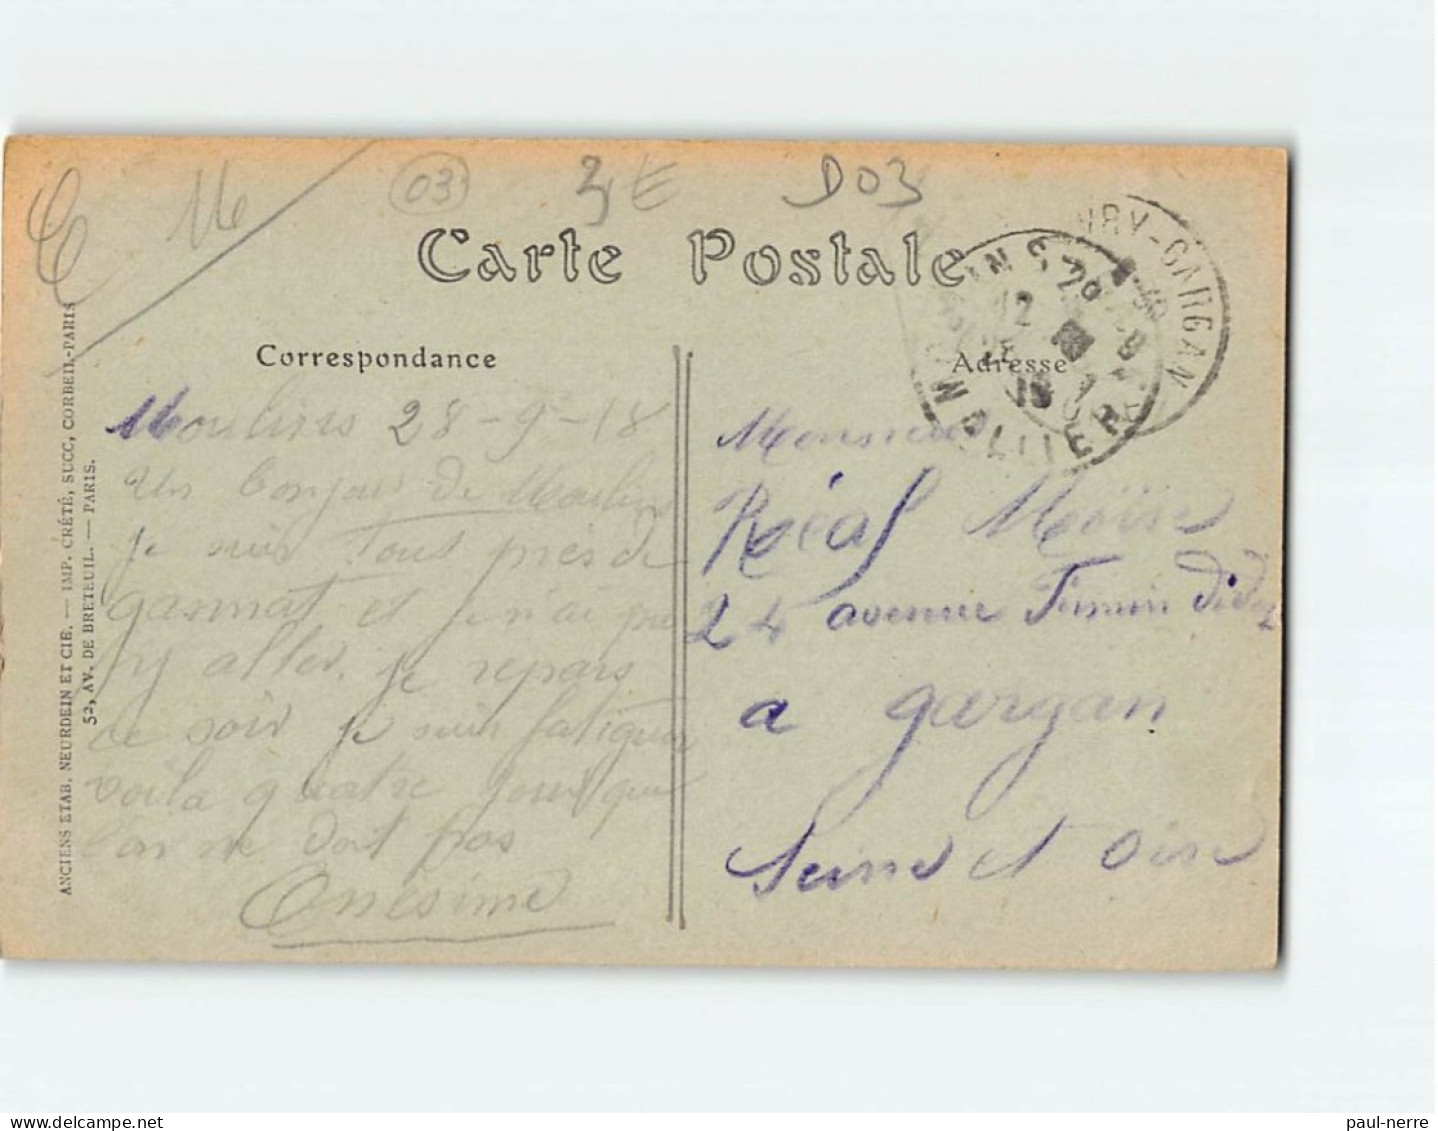 16
03
3E
D03
Carte Postale
LIVRY-GARGAN
MOULINS
ALLIER
Correspondance
Adresse
ANCIENS ETAB. NEURDEIN ET CIE. — IMP. CRÉTÉ, SUCC, CORBEIL-PARIS
52, AV. DE BRETEUIL. — PARIS.
Moulins 28-9-18
un bonjour de Moulins
je suis tout près de
gannat et je n'ai pu
y aller. je repars
ce soir je suis fatiguer
voila quatre jours que
l'on ne dort pas
Onésime
Monsieur
Réal Moïse
24 avenue Firmin Didot
a gargan
Seine et Oise
paul-nerre